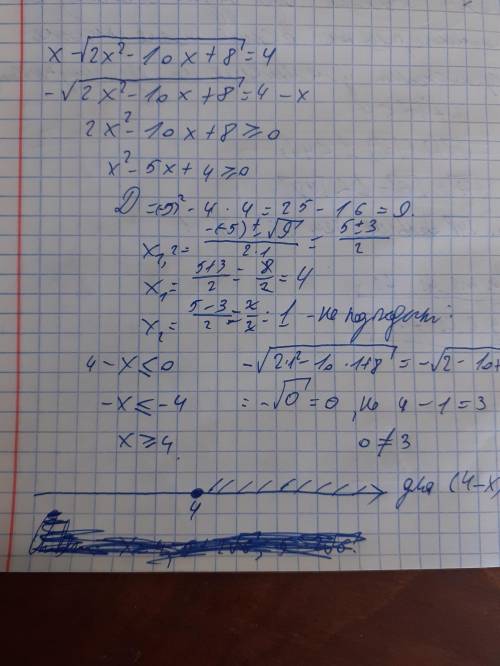 x - √(2x² - 10x + 8) = 4
-√(2x² - 10x + 8) = 4 - x
2x² - 10x + 8 ≥ 0
x² - 5x + 4 ≥ 0
D = (-5)² - 4 · 4 = 25 - 16 = 9.
x₁,₂ = (-(-5) ± √9)/(2·1) = (5±3)/2
x₁ = (5+3)/2 = 8/2 = 4
x₂ = (5-3)/2 = 2/2 = 1 - не подходит:
4 - x ≤ 0 -√(2·1² - 10·1+8) = -√(2 - 10+
-x ≤ -4 = -√0 = 0, но 4 - 1 = 3
x ≥ 4. 0 ≠ 3
4 для (4-x)